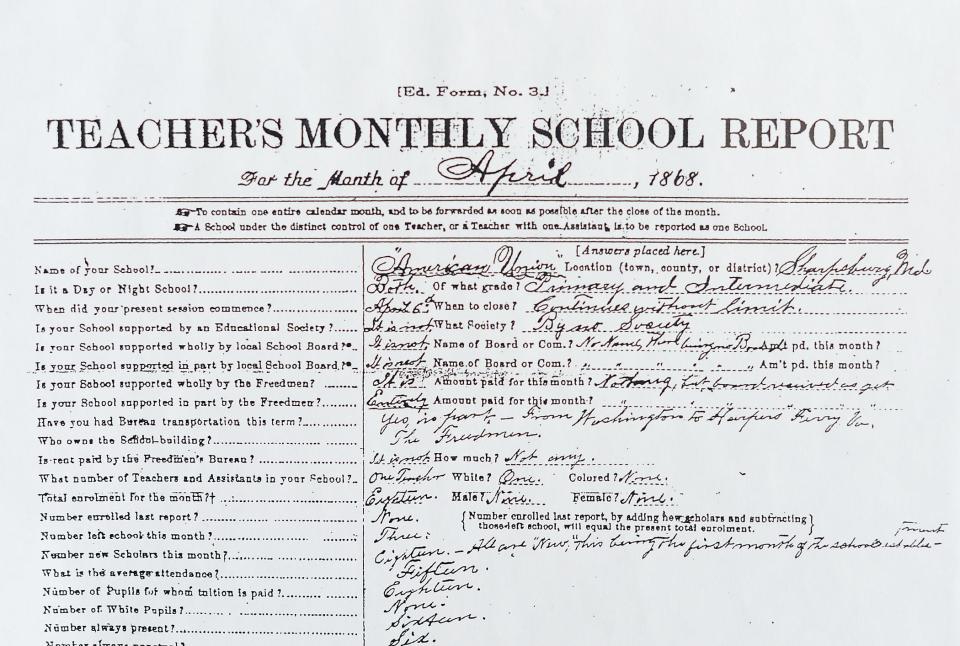 [Ed. Form, No. 3.]
TEACHER'S MONTHLY SCHOOL REPORT
For the Month of April, 1868.
To contain one entire calendar month, and to be forwarded as soon as possible after the close of the month.
A School under the distinct control of one Teacher, or a Teacher with one Assistant, is to be reported as one School.
[Answers placed here.]
Name of your School? "American Union" Location (town, county, or district)? Sharpsburg, Md
Is it a Day or Night School? Both. Of what grade? Primary and Intermediate.
When did your present session commence? April 6th When to close? Continues without limit.
Is your School supported by an Educational Society? It is not What Society? By no Society
Is your School supported wholly by local School Board? It is not Name of Board or Com.? No Name, there being no Board pd. this month?
Is your School supported in part by local School Board? It is not Name of Board or Com.? " " " " " Am't pd. this month?
Is your School supported wholly by the Freedmen? It is. Amount paid for this month? Nothing, but board received as yet
Is your School supported in part by the Freedmen? Entirely Amount paid for this month? " " " " "
Have you had Bureau transportation this term? Yes, in part – From Washington to Harpers Ferry Va.
Who owns the School-building? The Freedmen.
Is rent paid by the Freedmen's Bureau? It is not How much? Not any.
What number of Teachers and Assistants in your School? One Teacher White? One. Colored? None.
Total enrolment for the month?† Eighteen. Male? None. Female? None.
Number enrolled last report? None. {Number enrolled last report, by adding new scholars and subtracting
those left school, will equal the present total enrolment.}
Number left school this month? Three.
Number new Scholars this month? Eighteen. – All are "New," this being the first month of the school's establishment
What is the average attendance? Fifteen.
Number of Pupils for whom tuition is paid? Eighteen.
Number of White Pupils? None.
Number always present? Sixteen.
Number always punctual? Six.